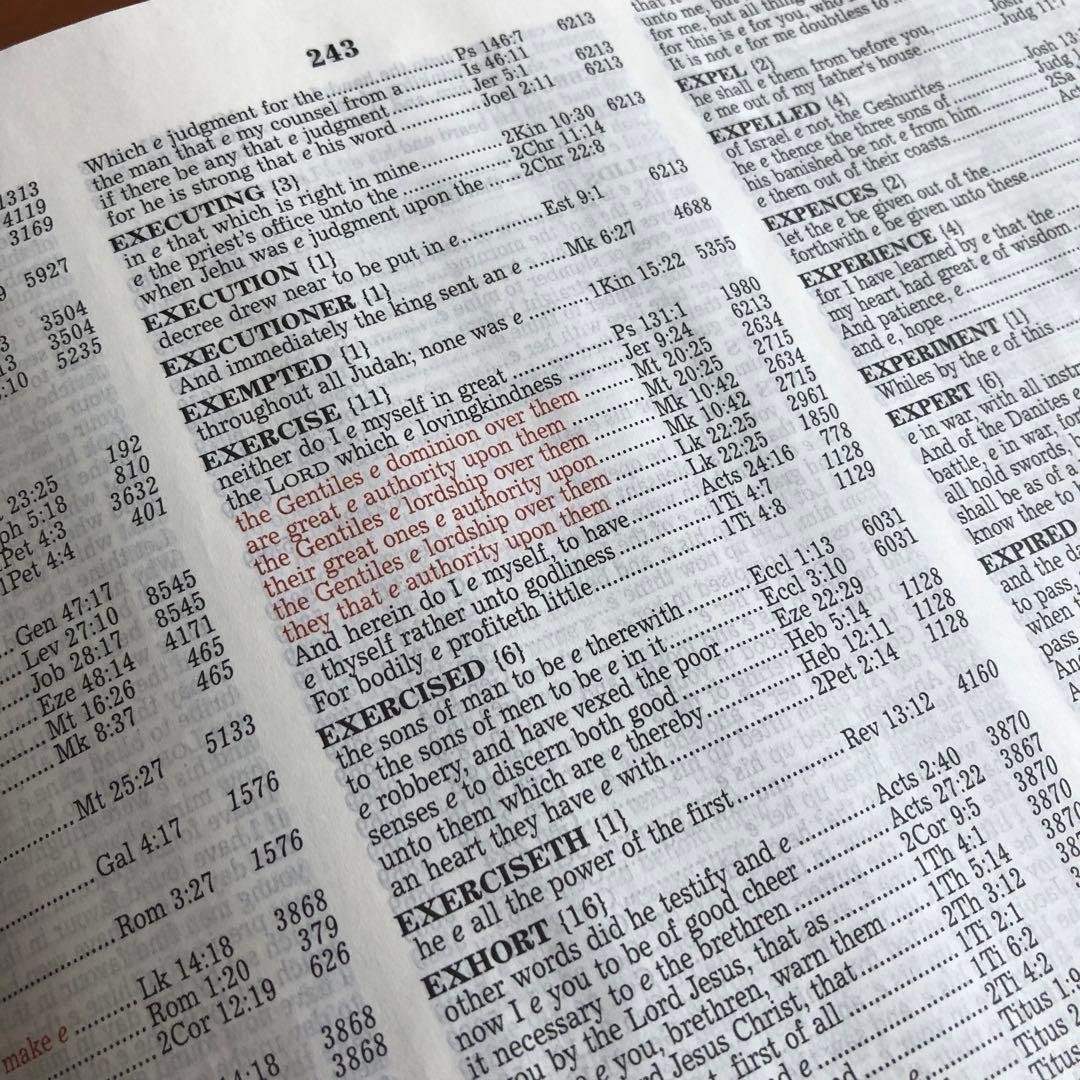 243
1313
4119
3169
5927
3504
3504
5235
192
23:25 810
ph 5:18 3632
Pet 4:3 401
1Pet 4:4
Gen 47:17 8545
Lev 27:10 8545
Job 28:17 4171
Eze 48:14 465
Mt 16:26 465
Mk 8:37
5133
Mt 25:27
1576
Gal 4:17
1576
Rom 3:27
3868
Lk 14:18 379
make e Rom 1:20 626
2Cor 12:19
3868
14:18 3868
Which e judgment for the Ps 146:7 6213
the man that e my counsel from a Is 46:11 6213
if there be any that e judgment Jer 5:1 6213
for he is strong that e his word Joel 2:11
EXECUTING {3} 6213
in e that which is right in mine 2Kin 10:30
e the priest's office unto the 2Chr 11:14
when Jehu was e judgment upon the 2Chr 22:8
EXECUTION {1} 6213
decree drew near to be put in e Est 9:1
EXECUTIONER {1} 4688
And immediately the king sent an e Mk 6:27
EXEMPTED {1} 5355
throughout all Judah; none was e 1Kin 15:22
EXERCISE {11}
neither do I e myself in great Ps 131:1 1980
the LORD which e lovingkindness Jer 9:24 6213
the Gentiles e dominion over them Mt 20:25 2634
are great e authority upon them Mt 20:25 2715
the Gentiles e lordship over them Mk 10:42 2634
their great ones e authority upon Mk 10:42 2715
the Gentiles e lordship over them Lk 22:25 2961
they that e authority upon them Lk 22:25 1850
And herein do I e myself, to have Acts 24:16 778
e thyself rather unto godliness 1Ti 4:7 1128
For bodily e profiteth little 1Ti 4:8 1129
EXERCISED {6}
the sons of man to be e therewith Eccl 1:13 6031
to the sons of men to be e in it Eccl 3:10 6031
e robbery, and have vexed the poor Eze 22:29
senses e to discern both good Heb 5:14 1128
unto them which are e thereby Heb 12:11 1128
an heart they have e with 2Pet 2:14 1128
EXERCISETH {1}
he e all the power of the first Rev 13:12 4160
EXHORT {16}
other words did he testify and e Acts 2:40 3870
now I e you to be of good cheer Acts 27:22 3867
it necessary to e the brethren 2Cor 9:5 3870
ou by the Lord Jesus, that as 1Th 4:1 3870
e you, brethren, warn them 1Th 5:14
rd Jesus Christ, that 2Th 3:12
t, first of all 1Ti 2:1
1Ti 6:2
2Ti 4:2
Titus
Titus
unto me, but
for me, but all things
for this is e for you, who
It is not e for me doubtless to
EXPEL {2}
he shall e them from before you, Josh
e me out of my father's house Judg 11:7
EXPELLED {4}
of Israel e not the Geshurites Josh 13:
he e thence the three sons of Judg
his banished be not e from him 2Sa
e them out of their coasts
EXPENCES {2}
let the e be given out of the
forthwith e be given unto these
EXPERIENCE {4}
for I have learned by e that the
my heart had great e of wisdom
And patience, e
and e, hope
EXPERIMENT {1}
Whiles by the e of this
EXPERT {6}
e in war, with all instr
And of the Danites e
battle, e in war, for
all hold swords, b
shall be as of a
know thee to
EXPIRED
and the da
to pass,
when t
pass